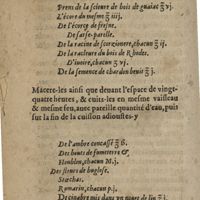 Prens de la scieure de bois de guaiac ℥ vj.
L'écorc du mesme ℥ iiij.
De l'écorce de fresne,
De sarse-parelle.
De la racine de scorzonere, chacun ℥ ij.
De la racleure du bois de Rhodes.
D'ivoire, chacun ʒ vj.
De la semence de chardon benit ℥ j.
Macere-les ainsi que deuant l'espace de vingt-
quatre heures, & cuits-les en mesme vaisseau
& mesme feu, auec pareille quantité d'eau, puis
sur la fin de la cuisson adioustes-y
De l'ambre concassé ℥ ß.
Des bouts de fumeterre &
Houblon, chacun M. j.
Des fleurs de buglose.
Stœchas.
Romarin, chacun p. j.
De cinabre mis dans vn noüet de lin ℥ j.